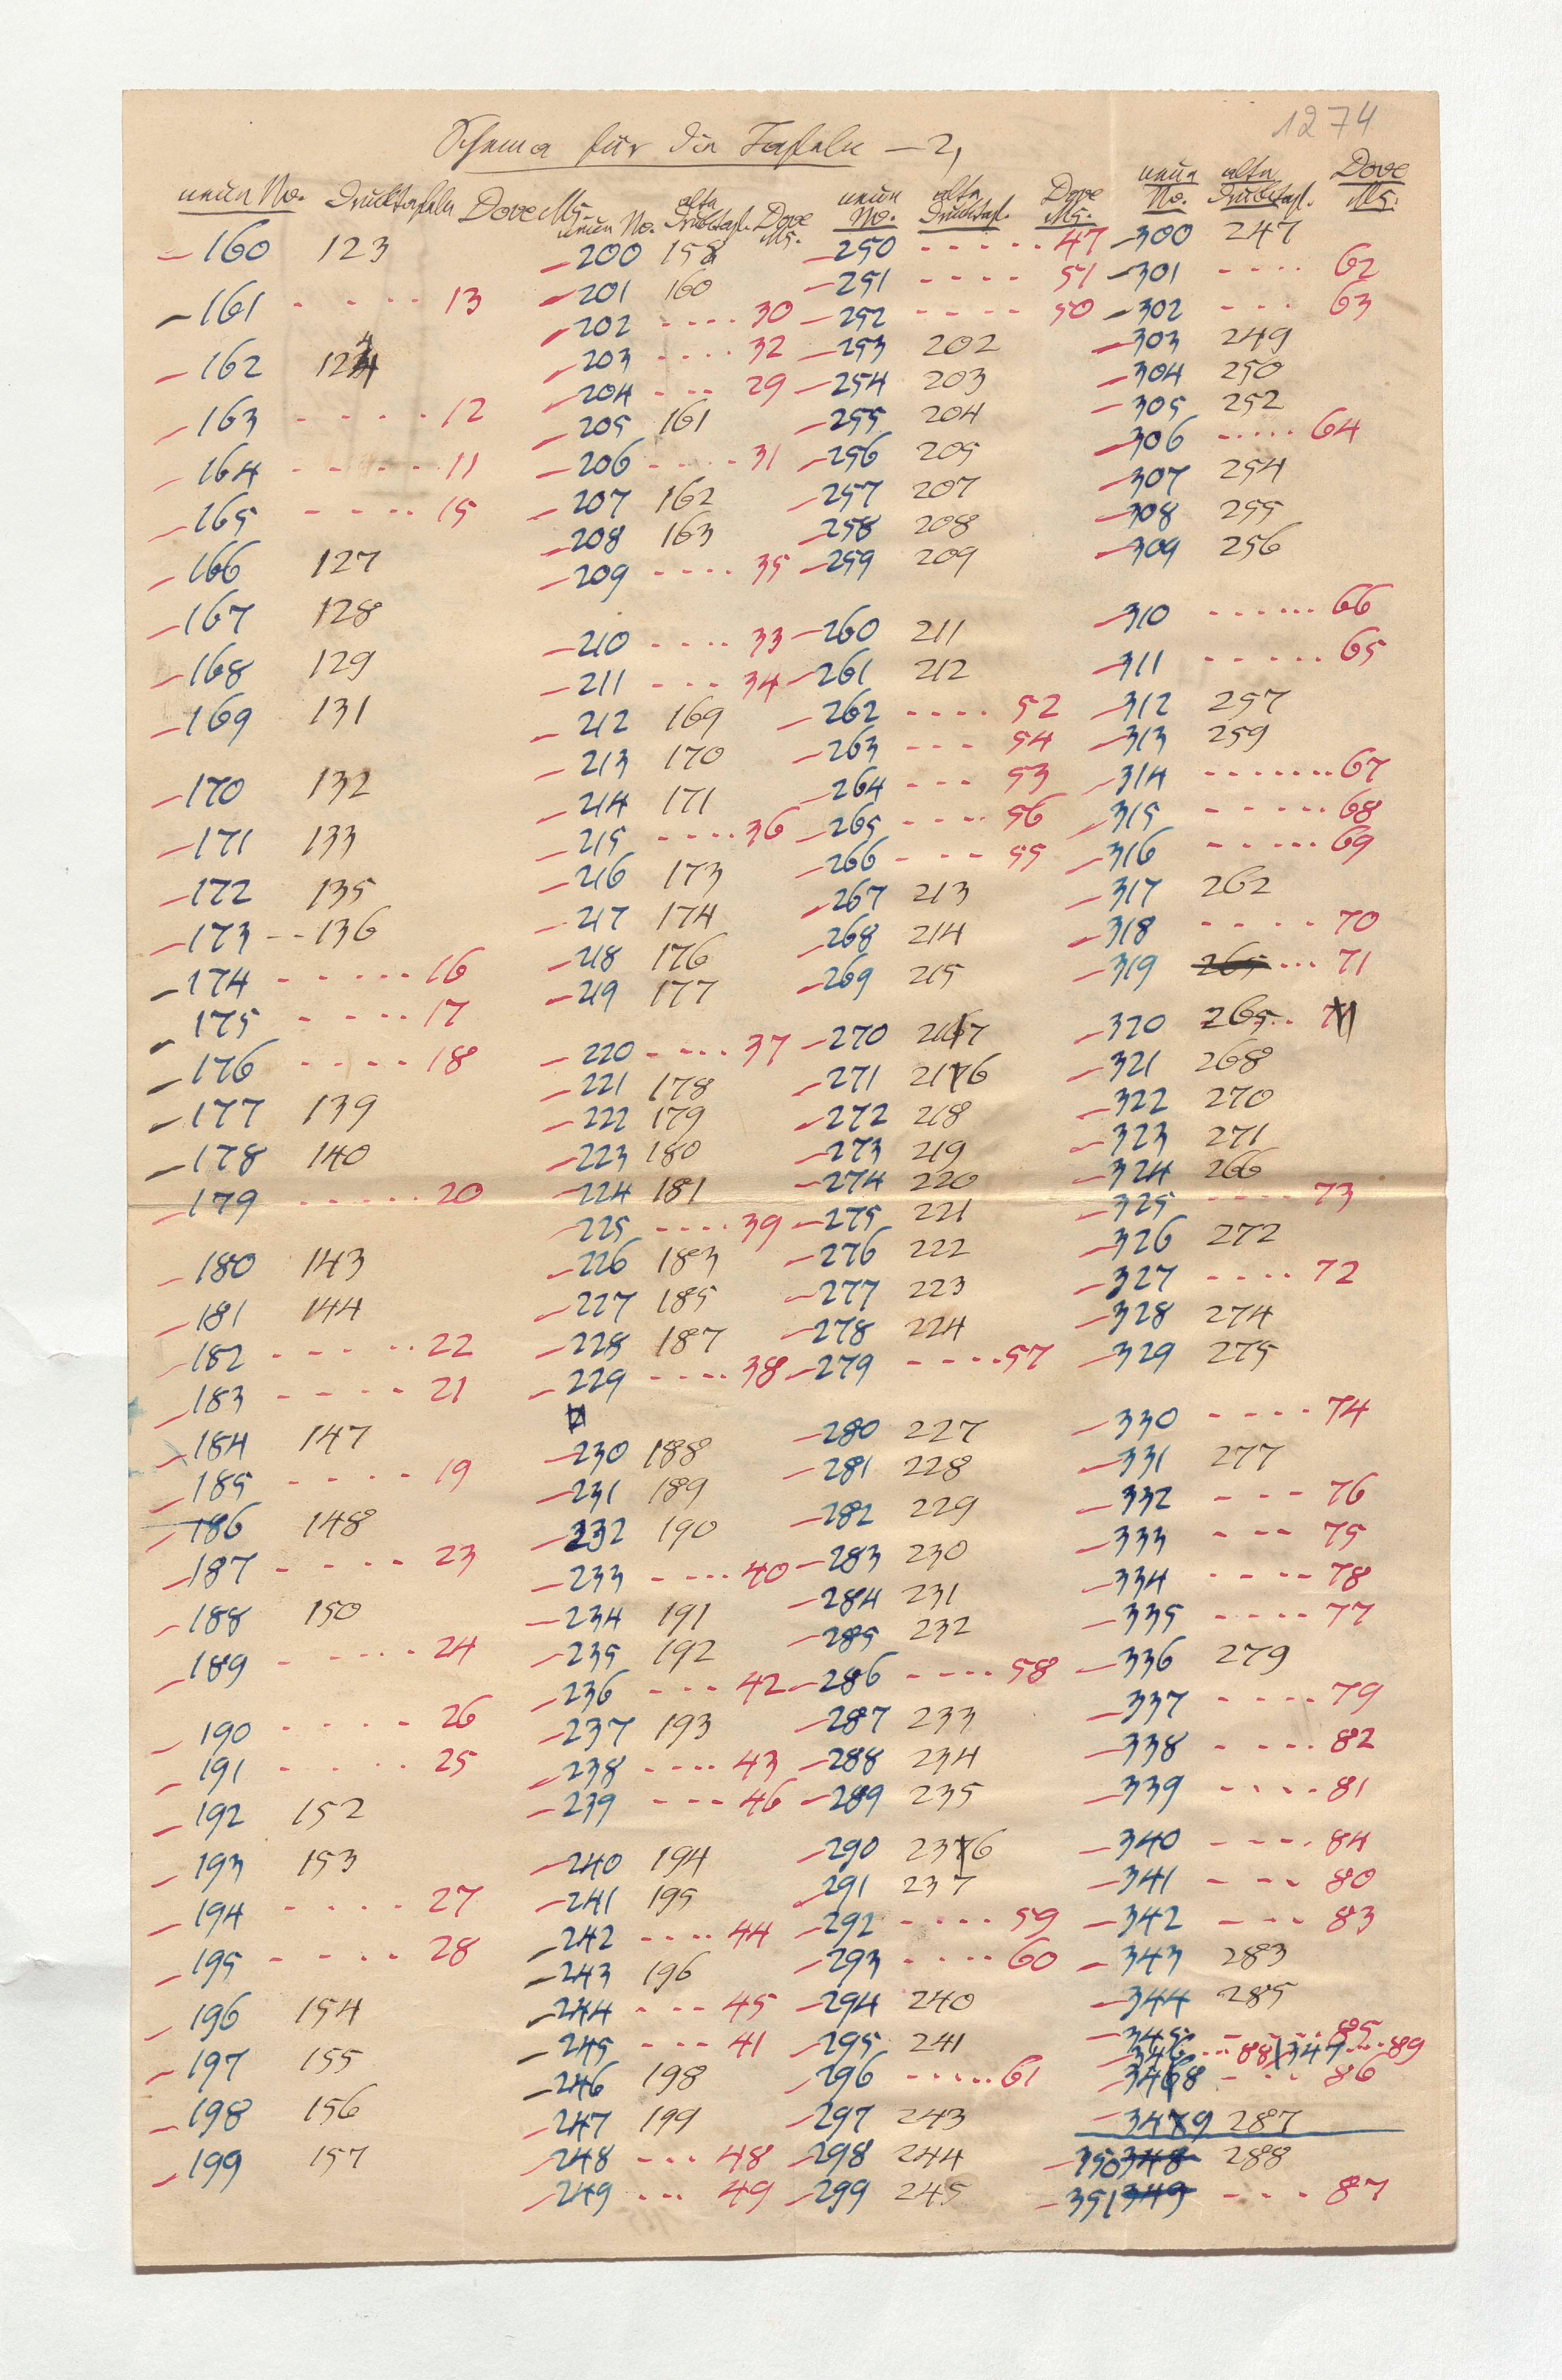 1274
Schema für die Tafeln – 2,
neue No. Drucktafeln Dove Ms.
– 160 123
– 161 - - - - - 13
– 162 124
– 163 - - - - - 12
– 164 - - - - - 11
– 165 - - - - - 15
– 166 127
– 167 128
– 168 129
– 169 131
– 170 132
– 171 133
– 172 135
– 173 - - 136
– 174 - - - - - 16
– 175 - - - - - 17
– 176 - - - - - 18
– 177 139
– 178 140
– 179 - - - - - 20
– 180 143
– 181 144
– 182 - - - - - 22
– 183 - - - - 21
– 184 147
– 185 - - - - 19
– 186 148
– 187 - - - - 23
– 188 150
– 189 - - - - 24
– 190 - - - - 26
– 191 - - - - 25
– 192 152
– 193 153
– 194 - - - - 27
– 195 - - - - 28
– 196 154
– 197 155
– 198 156
– 199 157
neue No. alte Drucktaf. Dove Ms.
– 200 158
– 201 160
– 202 - - - - 30
– 203 - - - - 32
– 204 - - - 29
– 205 161
– 206 - - - - 31
– 207 162
– 208 163
– 209 - - - - 35
– 210 - - - - 33
– 211 - - - 34
– 212 169
– 213 170
– 214 171
– 215 - - - - 36
– 216 173
– 217 174
– 218 176
– 219 177
– 220 - - - - 37
– 221 178
– 222 179
– 223 180
– 224 181
– 225 - - - - 39
– 226 183
– 227 185
– 228 187
– 229 - - - - 38
– 230 188
– 231 189
– 232 190
– 233 - - - - 40
– 234 191
– 235 192
– 236 - - - 42
– 237 193
– 238 - - - - 43
– 239 - - - 46
– 240 194
– 241 195
– 242 - - - - 44
– 243 196
– 244 - - - 45
– 245 - - - 41
– 246 198
– 247 199
– 248 - - - 48
– 249 - - - 49
neue No. alte Drucktaf. Dove Ms.
– 250 - - - - - 47
– 251 - - - - 51
– 252 - - - - 50
– 253 202
– 254 203
– 255 204
– 256 205
– 257 207
– 258 208
– 259 209
– 260 211
– 261 212
– 262 - - - - 52
– 263 - - - 54
– 264 - - - 53
– 265 - - - - 56
– 266 - - - 55
– 267 213
– 268 214
– 269 215
– 270 2167
– 271 2176
– 272 218
– 273 219
– 274 220
– 275 221
– 276 222
– 277 223
– 278 224
– 279 - - - - 57
– 280 227
– 281 228
– 282 229
– 283 230
– 284 231
– 285 232
– 286 - - - - 58
– 287 233
– 288 234
– 289 235
– 290 2376
– 291 237
– 292 - - - - 59
– 293 - - - - 60
– 294 240
– 295 241
– 296 - - - - - 61
– 297 243
– 298 244
– 299 245
neue No. alte Drucktaf. Dove Ms.
– 300 247
– 301 - - - - 62
– 302 - - - 63
– 303 249
– 304 250
– 305 252
– 306 - - - - - 64
– 307 254
– 308 255
– 309 256
– 310 - - - - - - 66
– 311 - - - - - 65
– 312 257
– 313 259
– 314 - - - - - - - 67
– 315 - - - - - 68
– 316 - - - - - 69
– 317 262
– 318 - - - - 70
– 319 265 - - - 71
– 320 265
– 321 268
– 322 270
– 323 271
– 324 266
– 325 - - - - 73
– 326 272
– 327 - - - - 72
– 328 274
– 329 275
– 330 - - - - 74
– 331 277
– 332 - - - 76
– 333 - - - 75
– 334 - - - - 78
– 335 - - - - 77
– 336 279
– 337 - - - - 79
– 338 - - - - 82
– 339 - - - - 81
– 340 - - - - 84
– 341 - - - 80
– 342 - - - 83
– 343 283
– 344 285
– 345 - - - - 85
– 346 - - - 88 | 347 - - - 89
– 3468 - - - 86
– 3479 287
– 350 348 288
– 351 349 - - - 87